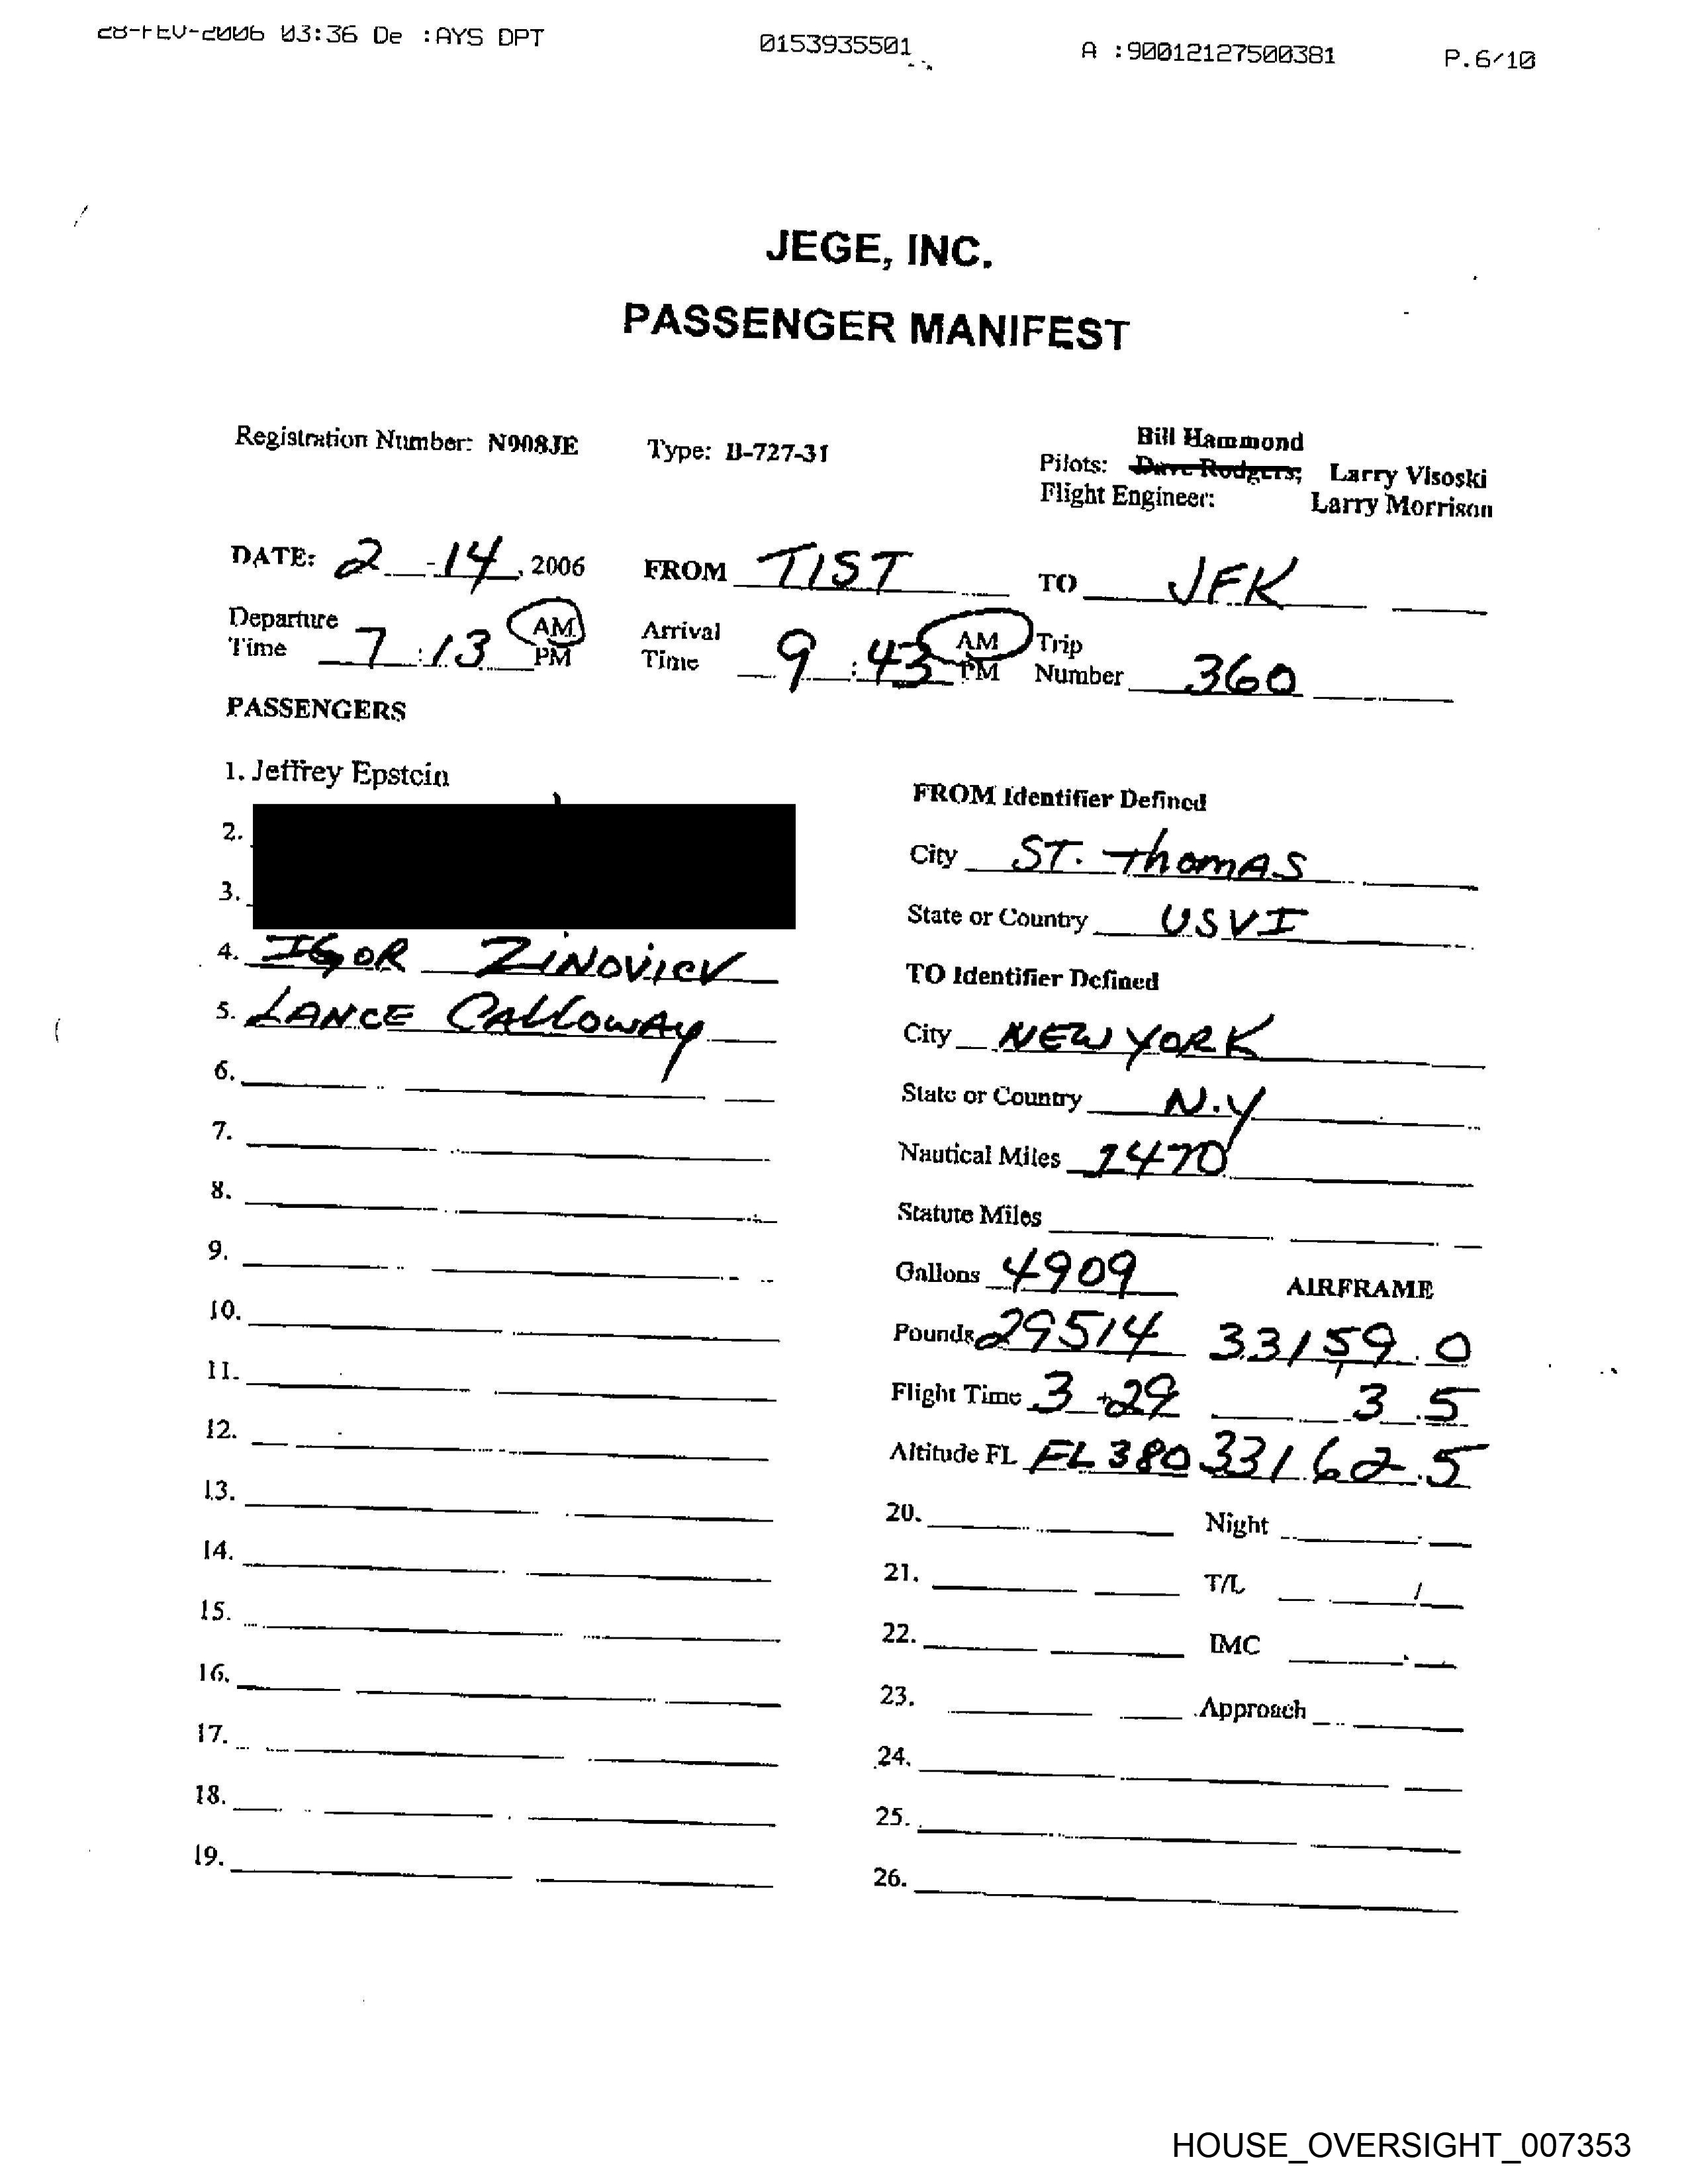 28-FEV-2006 03:36 De :AYS DPT 0153935501 A :90012127500381 P.6/10
JEGE, INC.
PASSENGER MANIFEST
Bill Hammond
Registration Number: N908JE Type: B-727-31 Pilots: Dave Rodgers; Larry Visoski
Flight Engineer: Larry Morrison
DATE: 2 - 14, 2006 FROM TIST TO JFK
Departure Time 7:13 AM PM Arrival Time 9:43 AM PM Trip Number 360
PASSENGERS
1. Jeffrey Epstein
2.
3.
4. IGOR ZINOVIEV
5. LANCE CALLOWAY
6.
7.
8.
9.
10.
11.
12.
13.
14.
15.
16.
17.
18.
19.
FROM Identifier Defined
City ST. Thomas
State or Country USVI
TO Identifier Defined
City NEW YORK
State or Country N.Y
Nautical Miles 1470
Statute Miles
Gallons 4909 AIRFRAME
Pounds 29514 33159.0
Flight Time 3+29 3.5
Altitude FL FL380 33162.5
20. Night
21. T/L /
22. IMC
23. Approach
24.
25.
26.
HOUSE_OVERSIGHT_007353